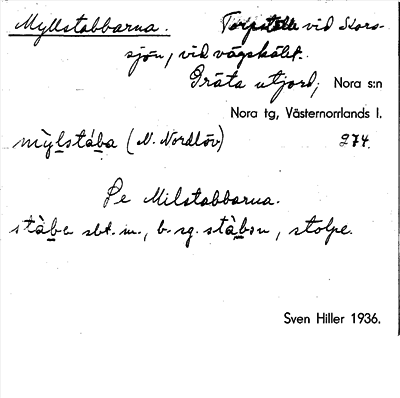 Myllstabbarna. Torpställe vid Stors-
sjön, vid vägskälet.
Gräta utjord, Nora s:n
Nora tg, Västernorrlands l.
mỳlstába (N. Nordlöv) 274.
Se Milstabbarna.
stàbe sbt. m., b. sg. stàbɘn, stolpe.
Sven Hiller 1936.